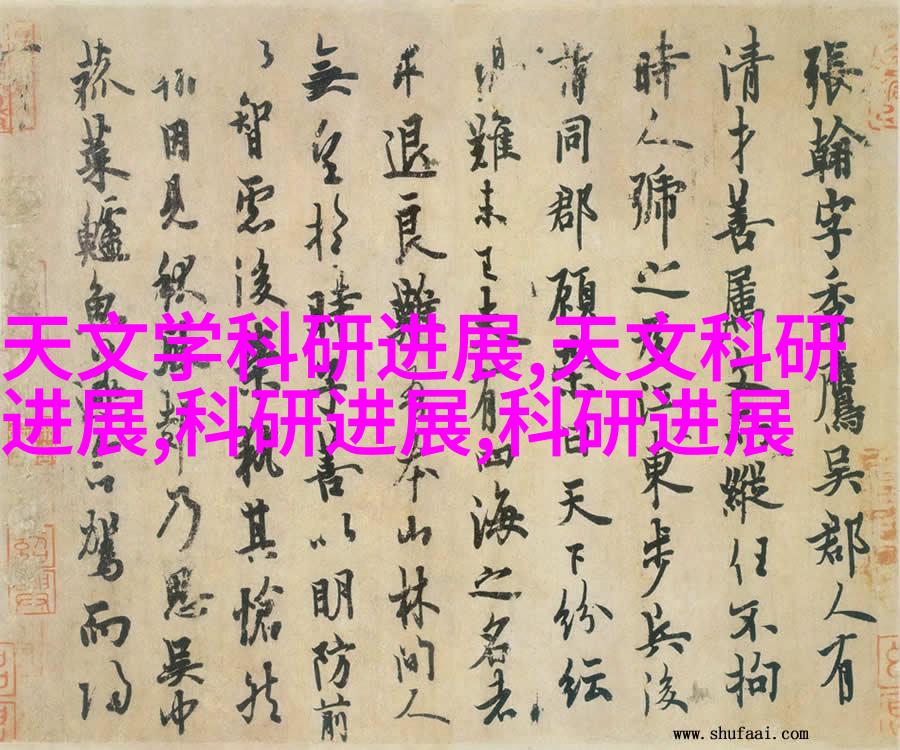 張翰字季鷹吳郡人有
清才善屬文而縱任不拘
時人號之為江東步兵後
謂同郡顧榮曰天下紛紜
難未已夫有四海之名者
求退良難吾本山林間人
無望於時子善以明防前
以智慮後榮執其愴然
翰因見秋風起乃思吳中
菰菜鱸魚遂命駕而歸
天文学科研进展,天文科研
进展,科研进展,科研进展
www.shufaai.com